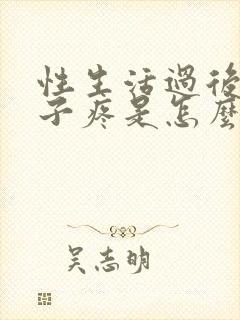 性生活過後
子疼是怎麼
吴志明